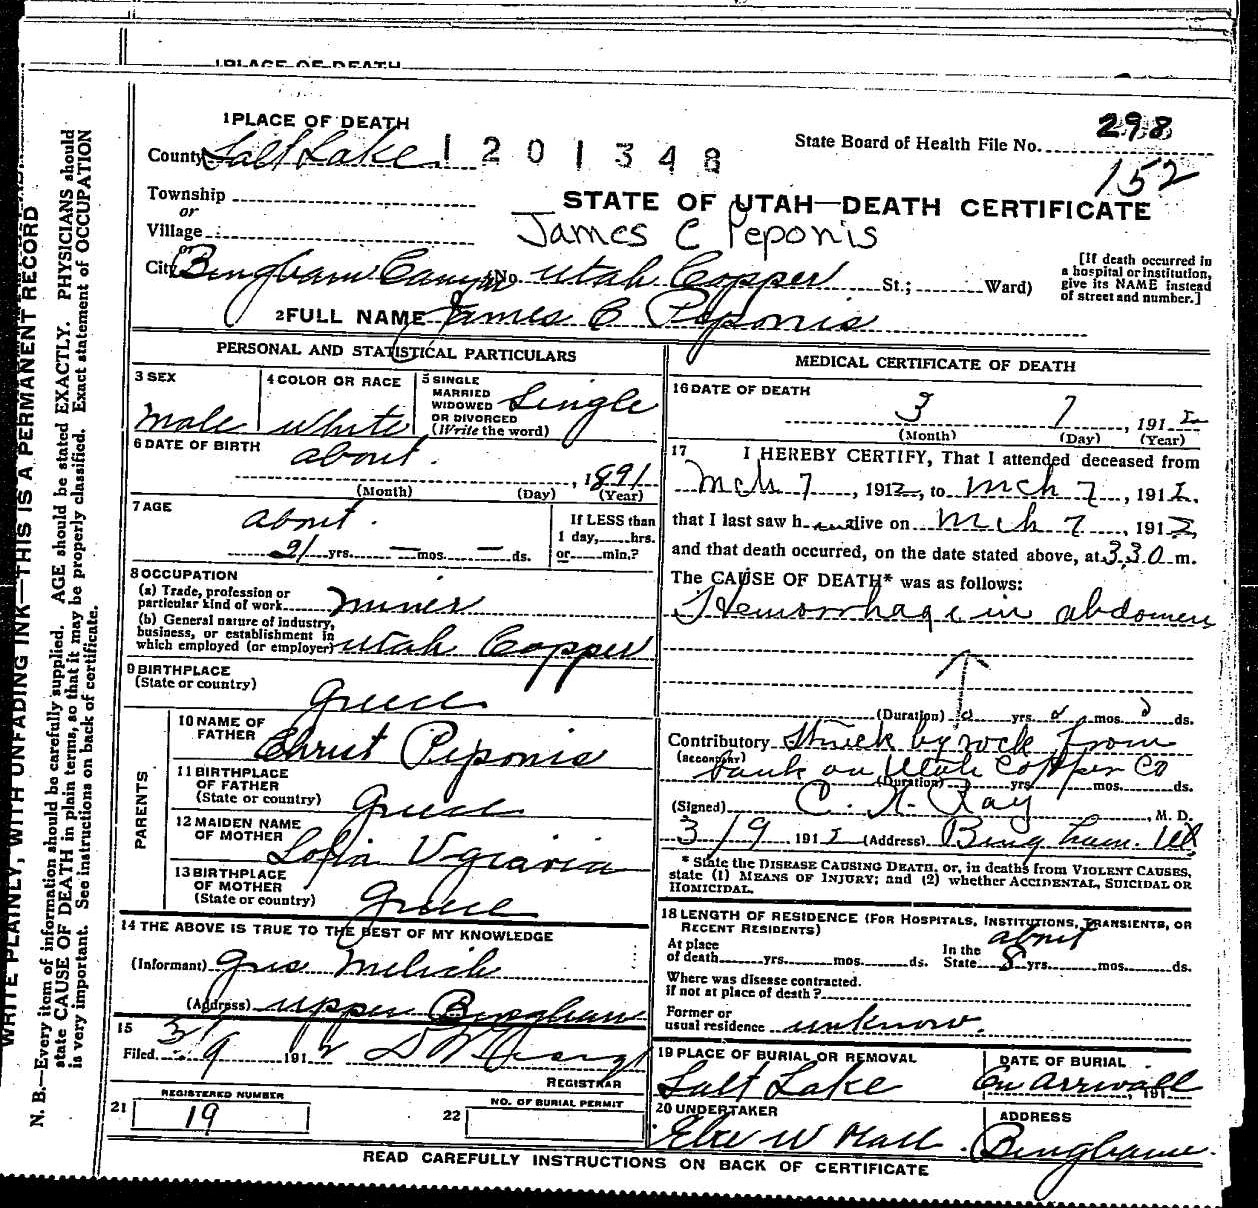 1 PLACE OF DEATH
1 PLACE OF DEATH
County Salt Lake 1201348
State Board of Health File No. 298
152
Township
or
Village
or
STATE OF UTAH—DEATH CERTIFICATE
James C Peponis
City Bingham Canyon (No. Utah Copper St.; Ward)
[If death occurred in a hospital or institution, give its NAME instead of street and number.]
2 FULL NAME James C Peponis
PERSONAL AND STATISTICAL PARTICULARS
3 SEX
male
4 COLOR OR RACE
white
5 SINGLE
MARRIED
WIDOWED
OR DIVORCED
(Write the word)
Single
6 DATE OF BIRTH
about , 1891
(Month) (Day) (Year)
7 AGE
about
21 yrs. — mos. — ds.
If LESS than
1 day, hrs.
or min.?
8 OCCUPATION
(a) Trade, profession or
particular kind of work miner
(b) General nature of industry,
business, or establishment in
which employed (or employer) Utah Copper
9 BIRTHPLACE
(State or country)
Greece
PARENTS
10 NAME OF
FATHER
Christ Peponis
11 BIRTHPLACE
OF FATHER
(State or country) Greece
12 MAIDEN NAME
OF MOTHER
Sofia
13 BIRTHPLACE
OF MOTHER
(State or country) Greece
14 THE ABOVE IS TRUE TO THE BEST OF MY KNOWLEDGE
(Informant) Gus
(Address) upper Bingham
15
Filed 3/9 1912
REGISTRAR
21 REGISTERED NUMBER
19
22 NO. OF BURIAL PERMIT
MEDICAL CERTIFICATE OF DEATH
16 DATE OF DEATH
3 7 , 1912
(Month) (Day) (Year)
17 I HEREBY CERTIFY, That I attended deceased from
Mch 7 , 1912, to Mch 7 , 1912.
that I last saw h alive on Mch 7 , 1912,
and that death occurred, on the date stated above, at 3 30 m.
The CAUSE OF DEATH* was as follows:
Hemorrhage in abdomen
(Duration) 0 yrs. 0 mos. 0 ds.
Contributory Struck by rock from
bank on Utah Copper Co
(Duration) yrs. mos. ds.
(Signed) Ray, M. D.
3/9 1912 (Address) Bingham. Ut
* State the DISEASE CAUSING DEATH, or, in deaths from VIOLENT CAUSES,
state (1) MEANS OF INJURY; and (2) whether ACCIDENTAL, SUICIDAL OR
HOMICIDAL.
18 LENGTH OF RESIDENCE (FOR HOSPITALS, INSTITUTIONS, TRANSIENTS, OR
RECENT RESIDENTS)
At place
of death yrs. mos. ds.
In the
State about 8 yrs. mos. ds.
Where was disease contracted,
if not at place of death?
Former or
usual residence unknow.
19 PLACE OF BURIAL OR REMOVAL
Salt Lake
DATE OF BURIAL
On Arrivall , 191
20 UNDERTAKER
W Hall
ADDRESS
Bingham
READ CAREFULLY INSTRUCTIONS ON BACK OF CERTIFICATE
WRITE PLAINLY, WITH UNFADING INK—THIS IS A PERMANENT RECORD
N. B.—Every item of information should be carefully supplied. AGE should be stated EXACTLY. PHYSICIANS should
state CAUSE OF DEATH in plain terms, so that it may be properly classified. Exact statement of OCCUPATION
is very important. See instructions on back of certificate.